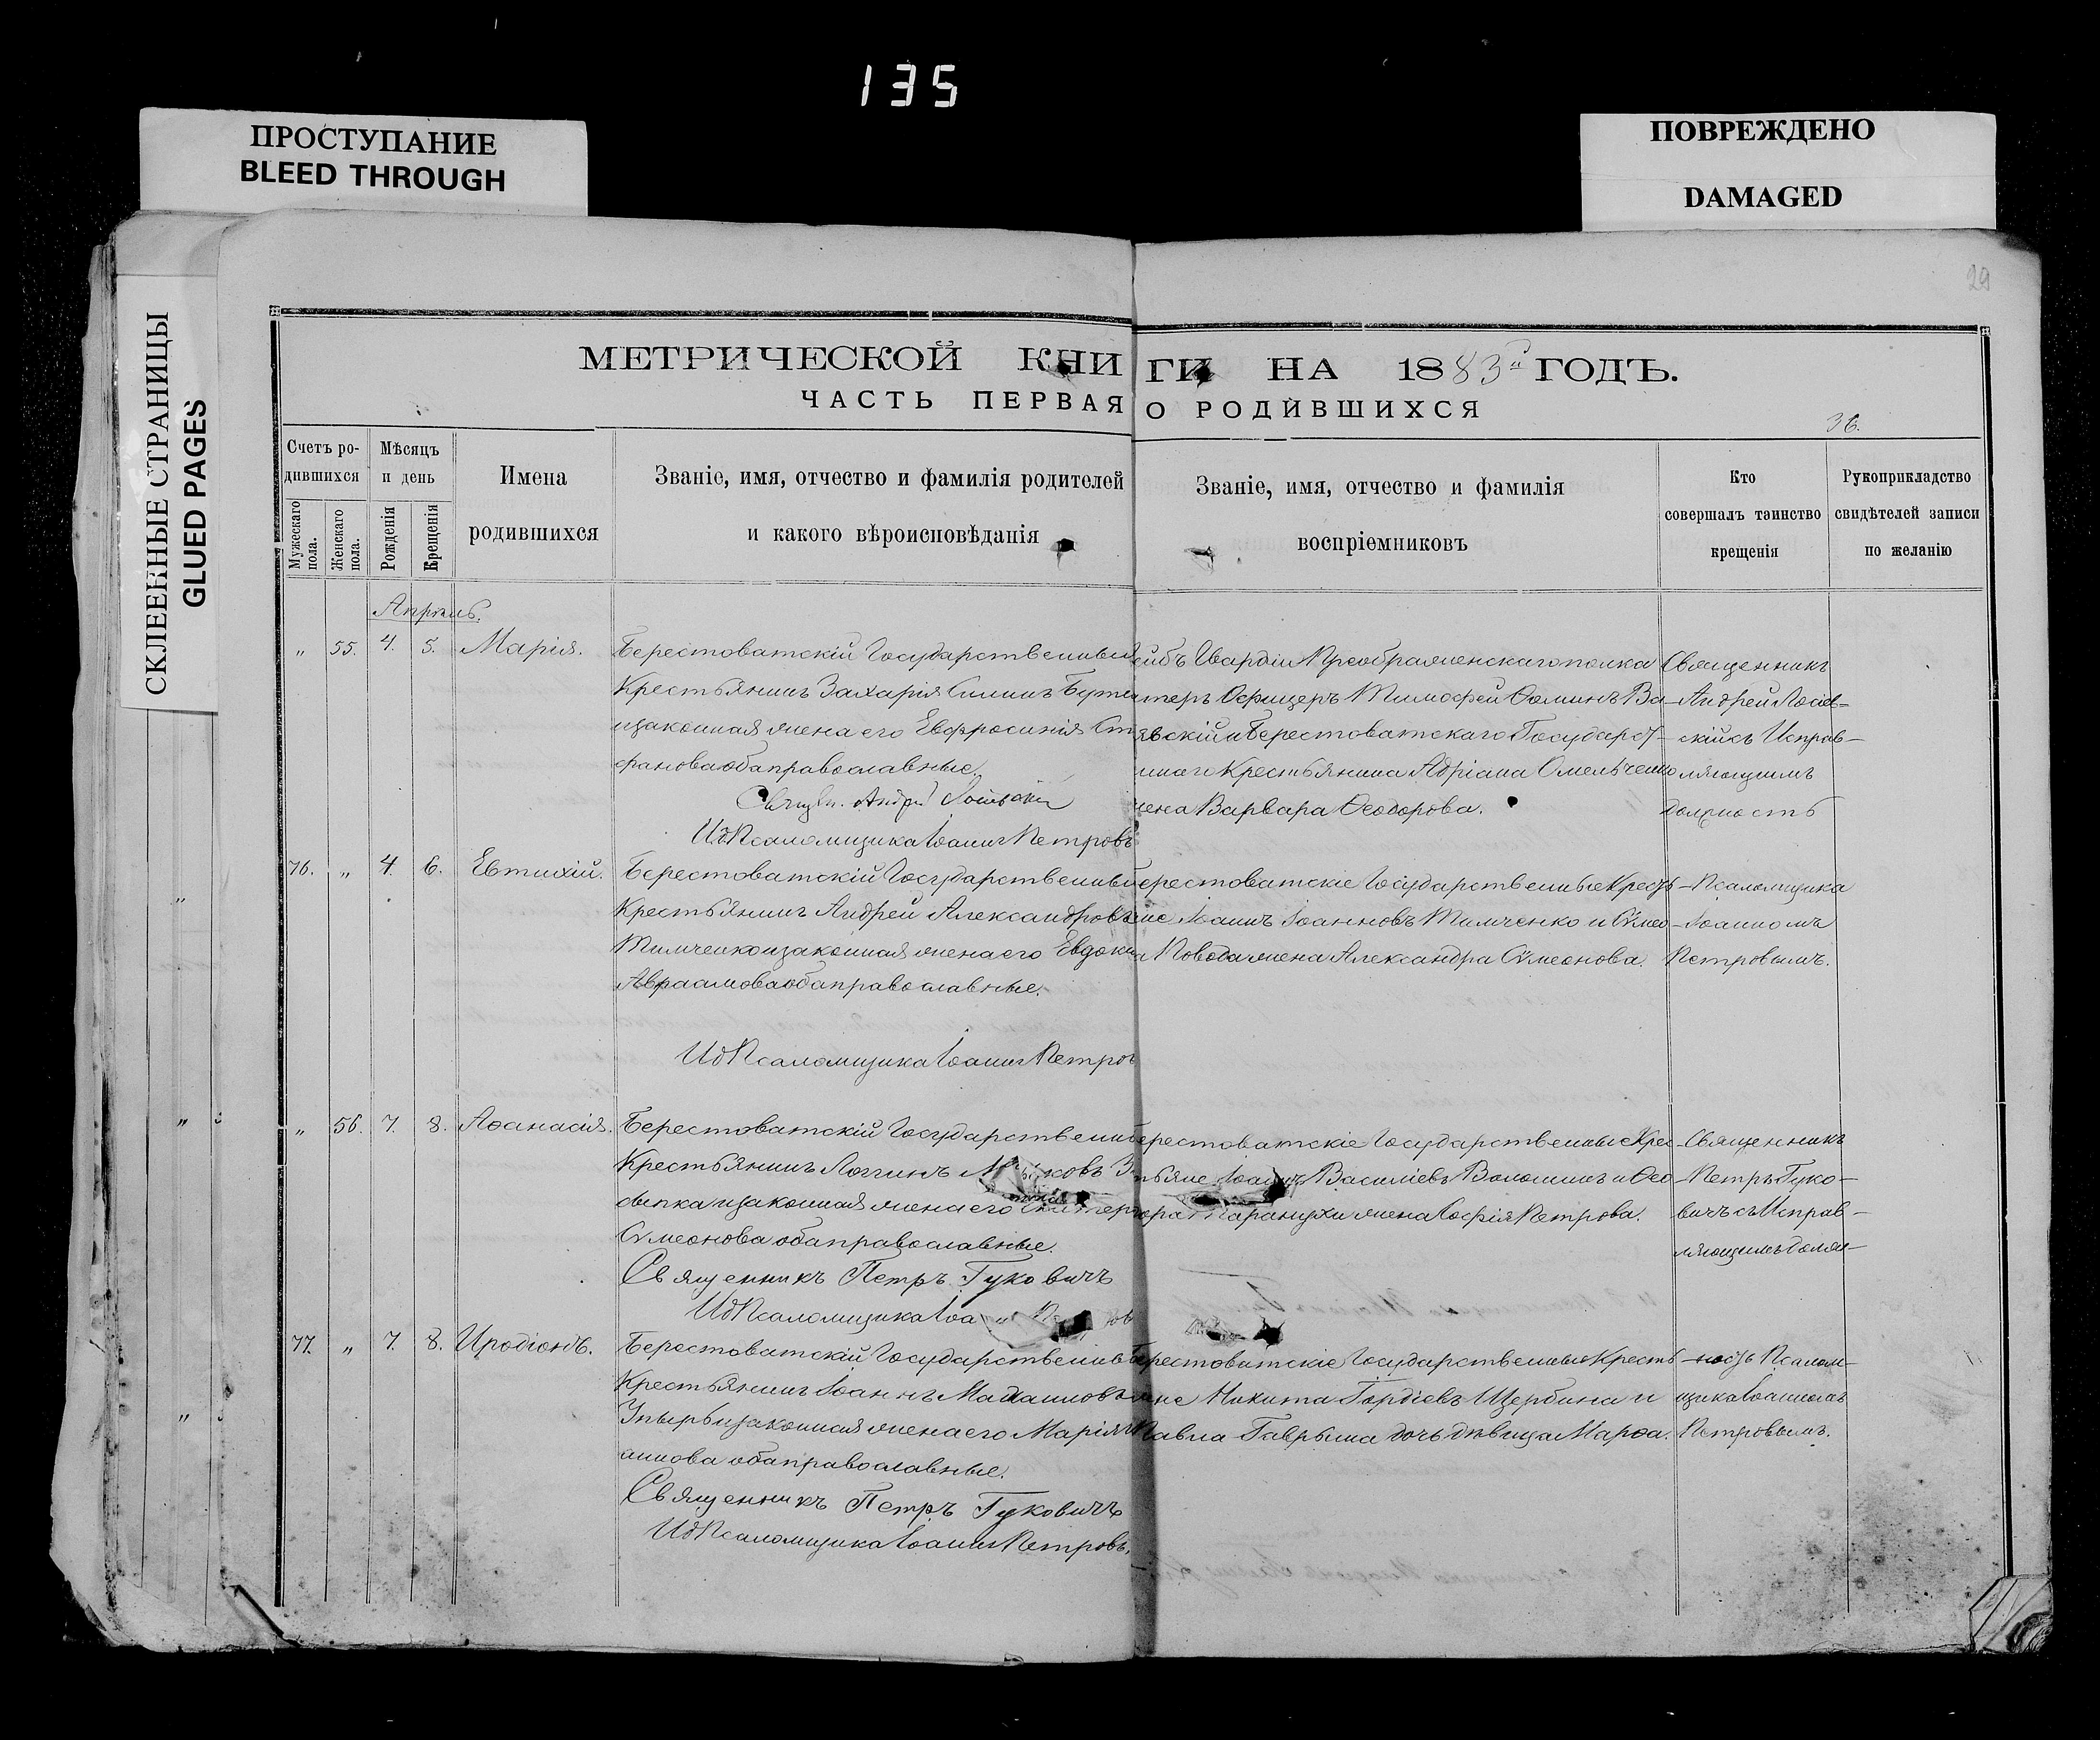 135
ПРОСТУПАНИЕ
BLEED THROUGH
ПОВРЕЖДЕНО
DAMAGED
СКЛЕЕННЫЕ СТРАНИЦЫ
GLUED PAGES
29
МЕТРИЧЕСКОЙ КНИ
ГИ НА 1883й ГОДЪ.
ЧАСТЬ ПЕРВАЯ
О РОДИВШИХСЯ
36.
Счетъ ро-
дившихся
Мужескаго пола.
Женскаго пола.
Мѣсяцъ
и день
Рожденія
Крещенія
Имена
родившихся
Званіе, имя, отчество и фамилія родителей
и какого вѣроисповѣданія
Званіе, имя, отчество и фамилія
воспріемниковъ
Кто
совершалъ таинство
крещенія
Рукоприкладство
свидѣтелей записи
по желанію
Апрѣль.
„ 55. 4. 5. Марія.
Берестоватскій Государственный
Крестьянинъ Захарія Симинъ
изаконная жена его Евфросинія Ст
фанова оба православные.
Священ. Андрей
Ид Псаломщика Іоаннъ Петровъ
ейбъ Гвардіи Преображенскаго полка
теръ Офицеръ Тимофей Ѳоминъ Ва
явскій и Берестоватскаго Государст
ннаго Крестьянина Адріана Омельченко
жена Варвара Ѳеодорова.
Священникъ
Андрей
скій съ Исправ-
ляющимъ
должность
76. „ 4. 6. Евтихій.
Берестоватскій Государственный
Крестьянинъ Андрей Александровъ
Тимченко изаконная жена его Евдокі
Авраамова оба православные.
Ид Псаломщика Іоаннъ Петров
ерестоватскіе Государственные Кресть
не Іоаннъ Іоанновъ Тимченко и Сѵмео
на Повода жена Александра Сѵмеонова.
Псаломщика
Іоанномъ
Петровымъ.
„ 56. 7. 8. Аѳанасія.
Берестоватскій Государственный
Крестьянинъ Логгинъ
изаконная жена его
Сѵмеонова оба православные.
Священникъ Петръ Гуковичъ
Ид Псаломщика Іоа
ерестоватскіе Государственные Крес
тьяне Іоаннъ Василіевъ Волошинъ и Ѳео
дора Таранухи жена Софія Петрова.
Священникъ
Петръ Гуко-
вичъ съ Исправ-
ляющимъ долж-
77. „ 7. 8. Иродіонъ.
Берестоватскій Государственный
Крестьянинъ Іоаннъ
Упырь изаконная жена его Марія
аннова оба православные.
Священникъ Петръ Гуковичъ
Ид Псаломщика Іоаннъ Петровъ.
ерестоватскіе Государственные Кресть
яне Никита Гордіевъ Щербина и
Павла Гаврыша дочь дѣвица Марѳа.
ность Псалом-
щика Іоанномъ
Петровымъ.